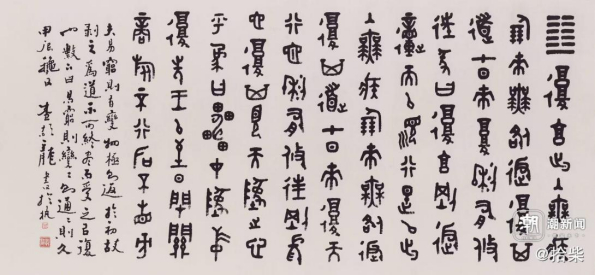 ䷗復亨出入無疾
朋來無咎反復其
道七日來復利有攸
往彖曰復亨剛反
動而以順行是以
出入無疾朋來無咎反
復其道七日來復天
行也利有攸往剛長
也復其見天地之心
乎象曰雷在地中
復先王以至日閉關
商旅不行后不省方
夫易窮則有變物極則返於初故
剝之為道不可終盡而受之以復
易窮則變變則通通則久
甲辰 書於杭
潮新闻
@拾柴